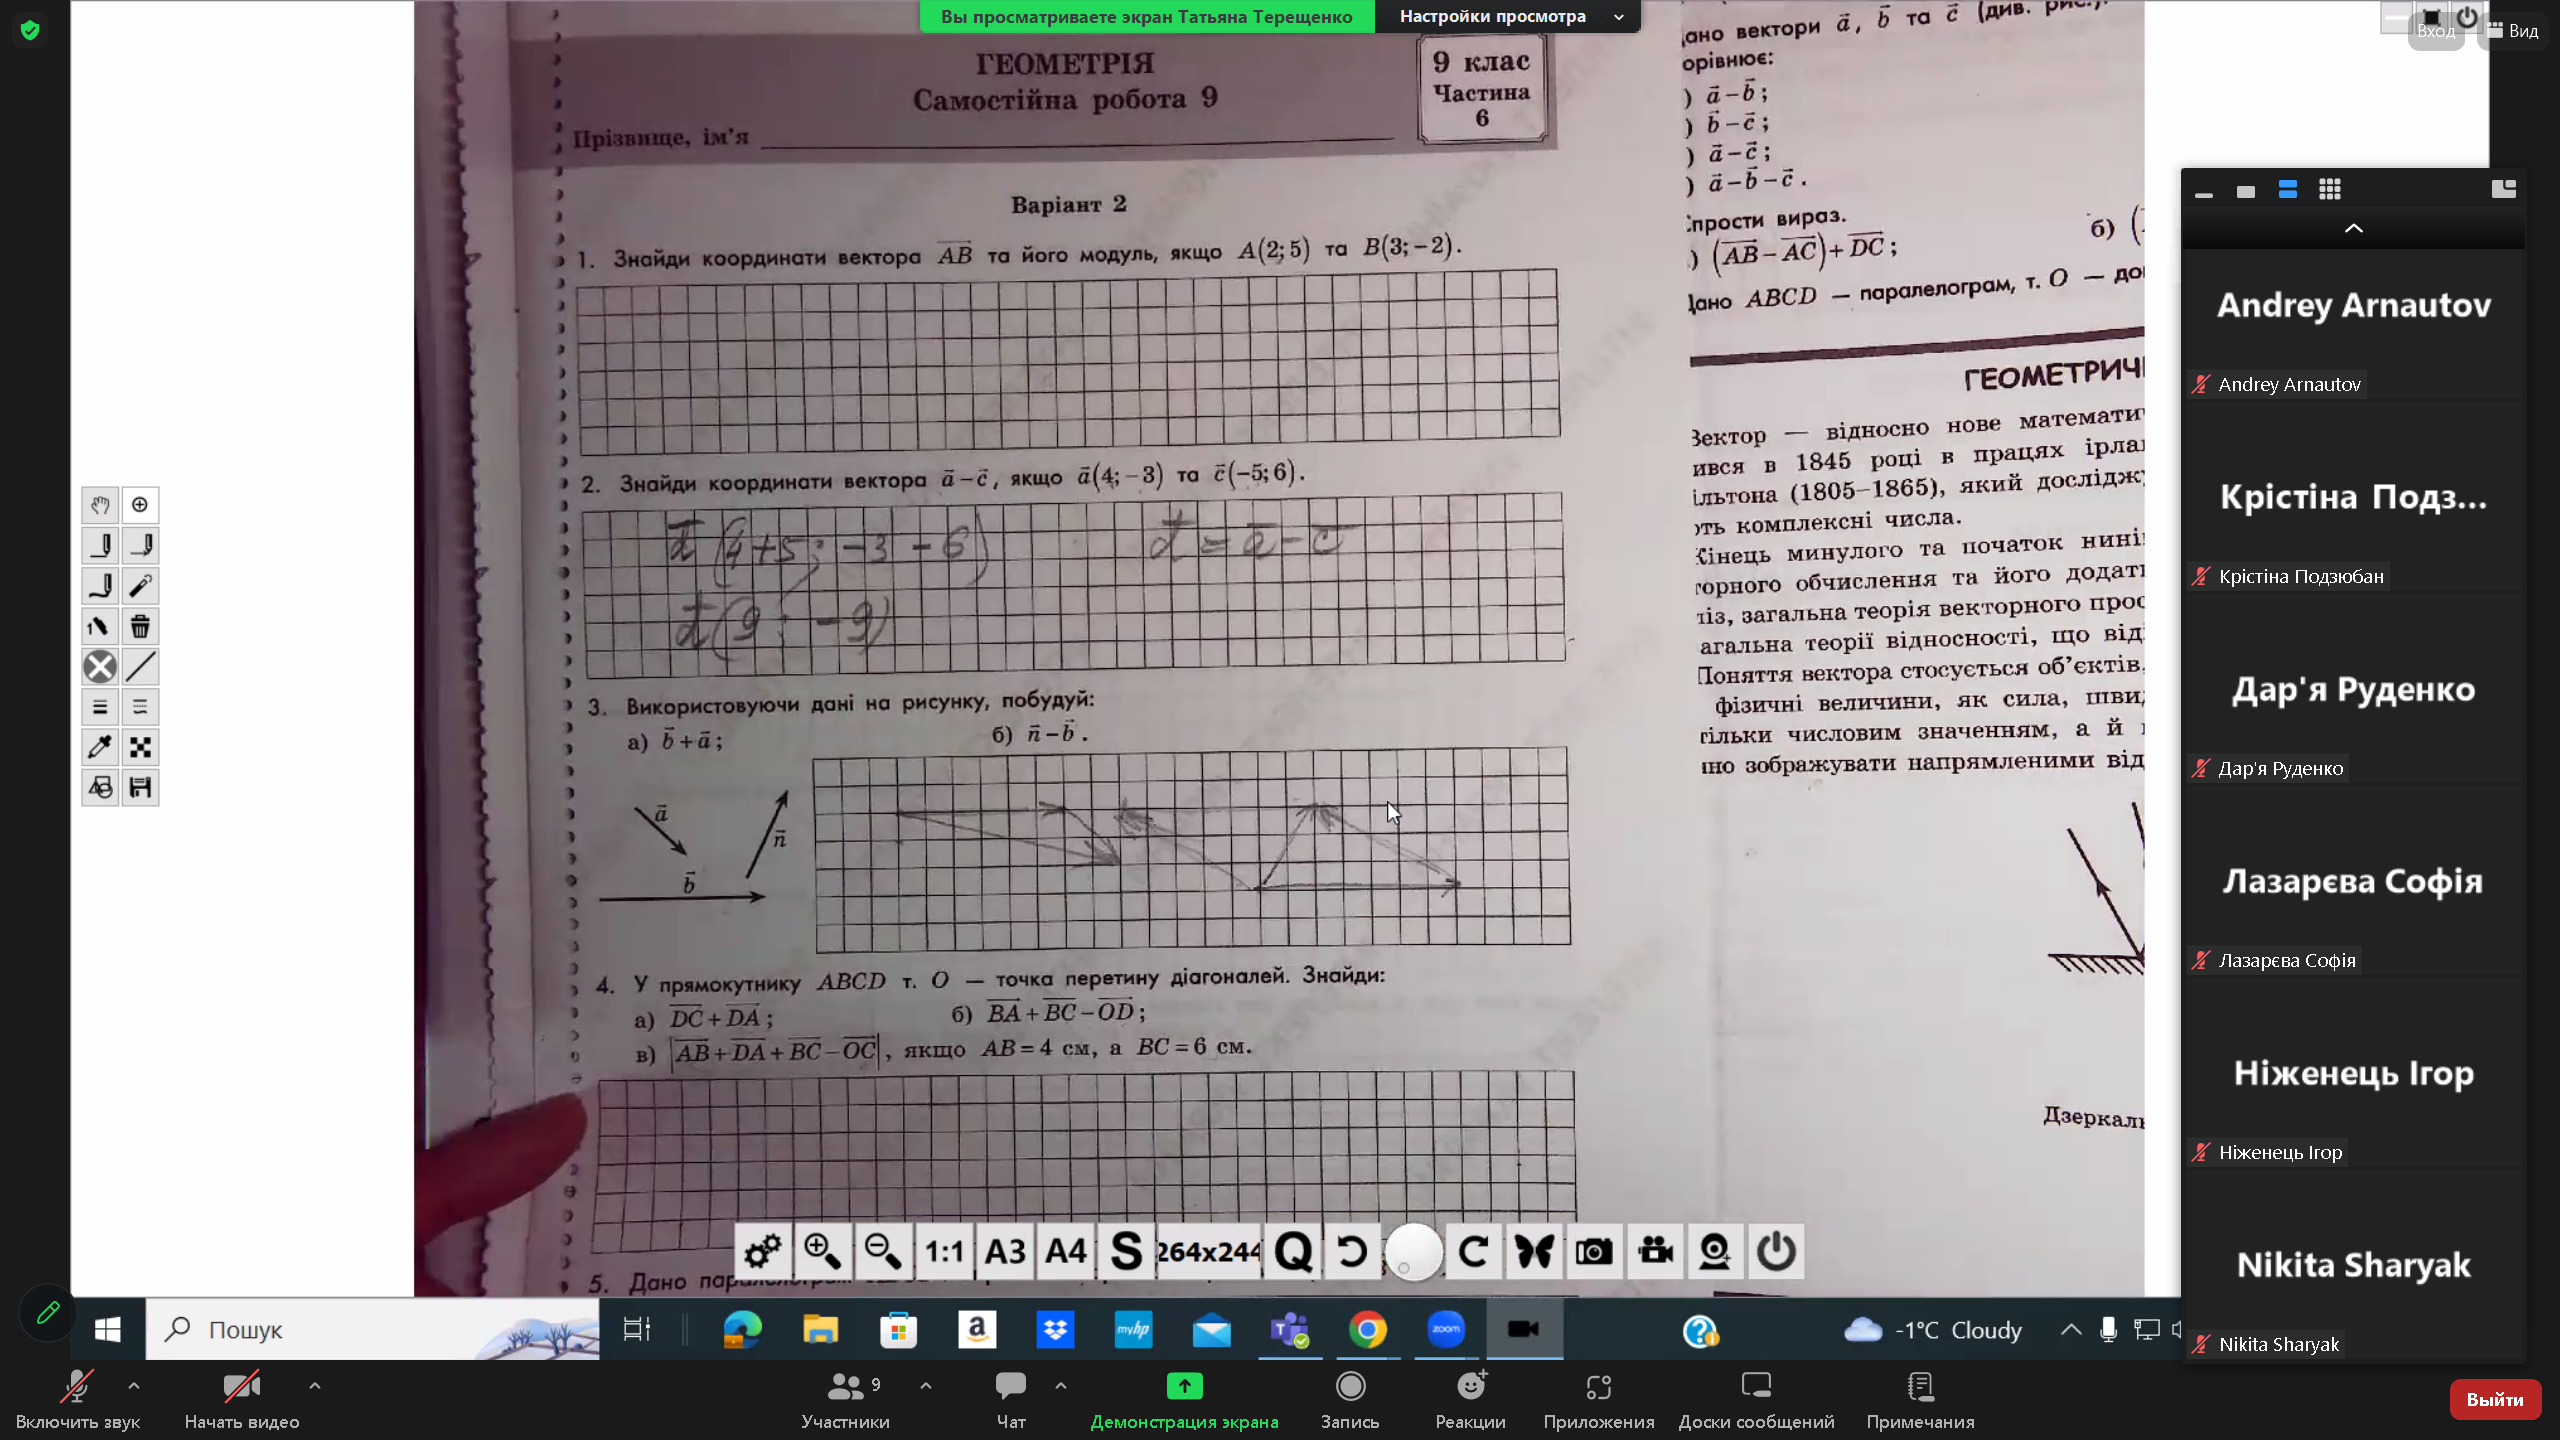 Вы просматриваете экран Татьяна Терещенко
Настройки просмотра
Вход
Вид
ГЕОМЕТРІЯ
Самостійна робота 9
Прізвище, ім'я
9 клас
Частина
6
Варіант 2
1. Знайди координати вектора AB та його модуль, якщо A(2; 5) та B(3; −2).
2. Знайди координати вектора a − c, якщо a(4; −3) та c(−5; 6).
d (4+5; −3 −6)
d = a − c
d (9; −9)
3. Використовуючи дані на рисунку, побудуй:
а) b + a;
б) n − b.
a
n
b
4. У прямокутнику ABCD т. O — точка перетину діагоналей. Знайди:
а) DC + DA;
б) BA + BC − OD;
в) |AB + DA + BC − OC|, якщо AB = 4 см, а BC = 6 см.
5. Дано
ано вектори a, b та c (див.
орівнює:
) a − b;
) b − c;
) a − c;
) a − b − c.
прости вираз.
) (AB − AC) + DC;
б) (
Дано ABCD — паралелограм, т. O —
ГЕОМЕТРИЧ
Вектор — відносно нове математи
ився в 1845 році в працях ірла
ільтона (1805–1865), який дослідж
ть комплексні числа.
Кінець минулого та початок нині
торного обчислення та його додат
ліз, загальна теорія векторного прос
агальна теорії відносності, що від
Поняття вектора стосується об'єктів,
фізичні величини, як сила, шви
тільки числовим значенням, а й
но зображувати напрямленими від
Дзеркаль
1:1
A3
A4
S
264x244
Q
Andrey Arnautov
Andrey Arnautov
Крістіна Подз...
Крістіна Подзюбан
Дар'я Руденко
Дар'я Руденко
Лазарєва Софія
Лазарєва Софія
Ніженець Ігор
Ніженець Ігор
Nikita Sharyak
Nikita Sharyak
Пошук
a
myhp
zoom
-1°C Cloudy
Включить звук
Начать видео
9
Участники
Чат
Демонстрация экрана
Запись
Реакции
Приложения
Доски сообщений
Примечания
Выйти